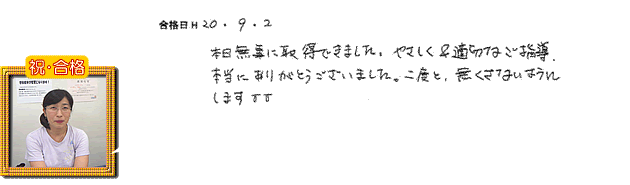 合格日 H20.9.2
本日無事に取得できました。やさしく&適切なご指導、
本当にありがとうございました。二度と、無くさないように
します
祝・合格